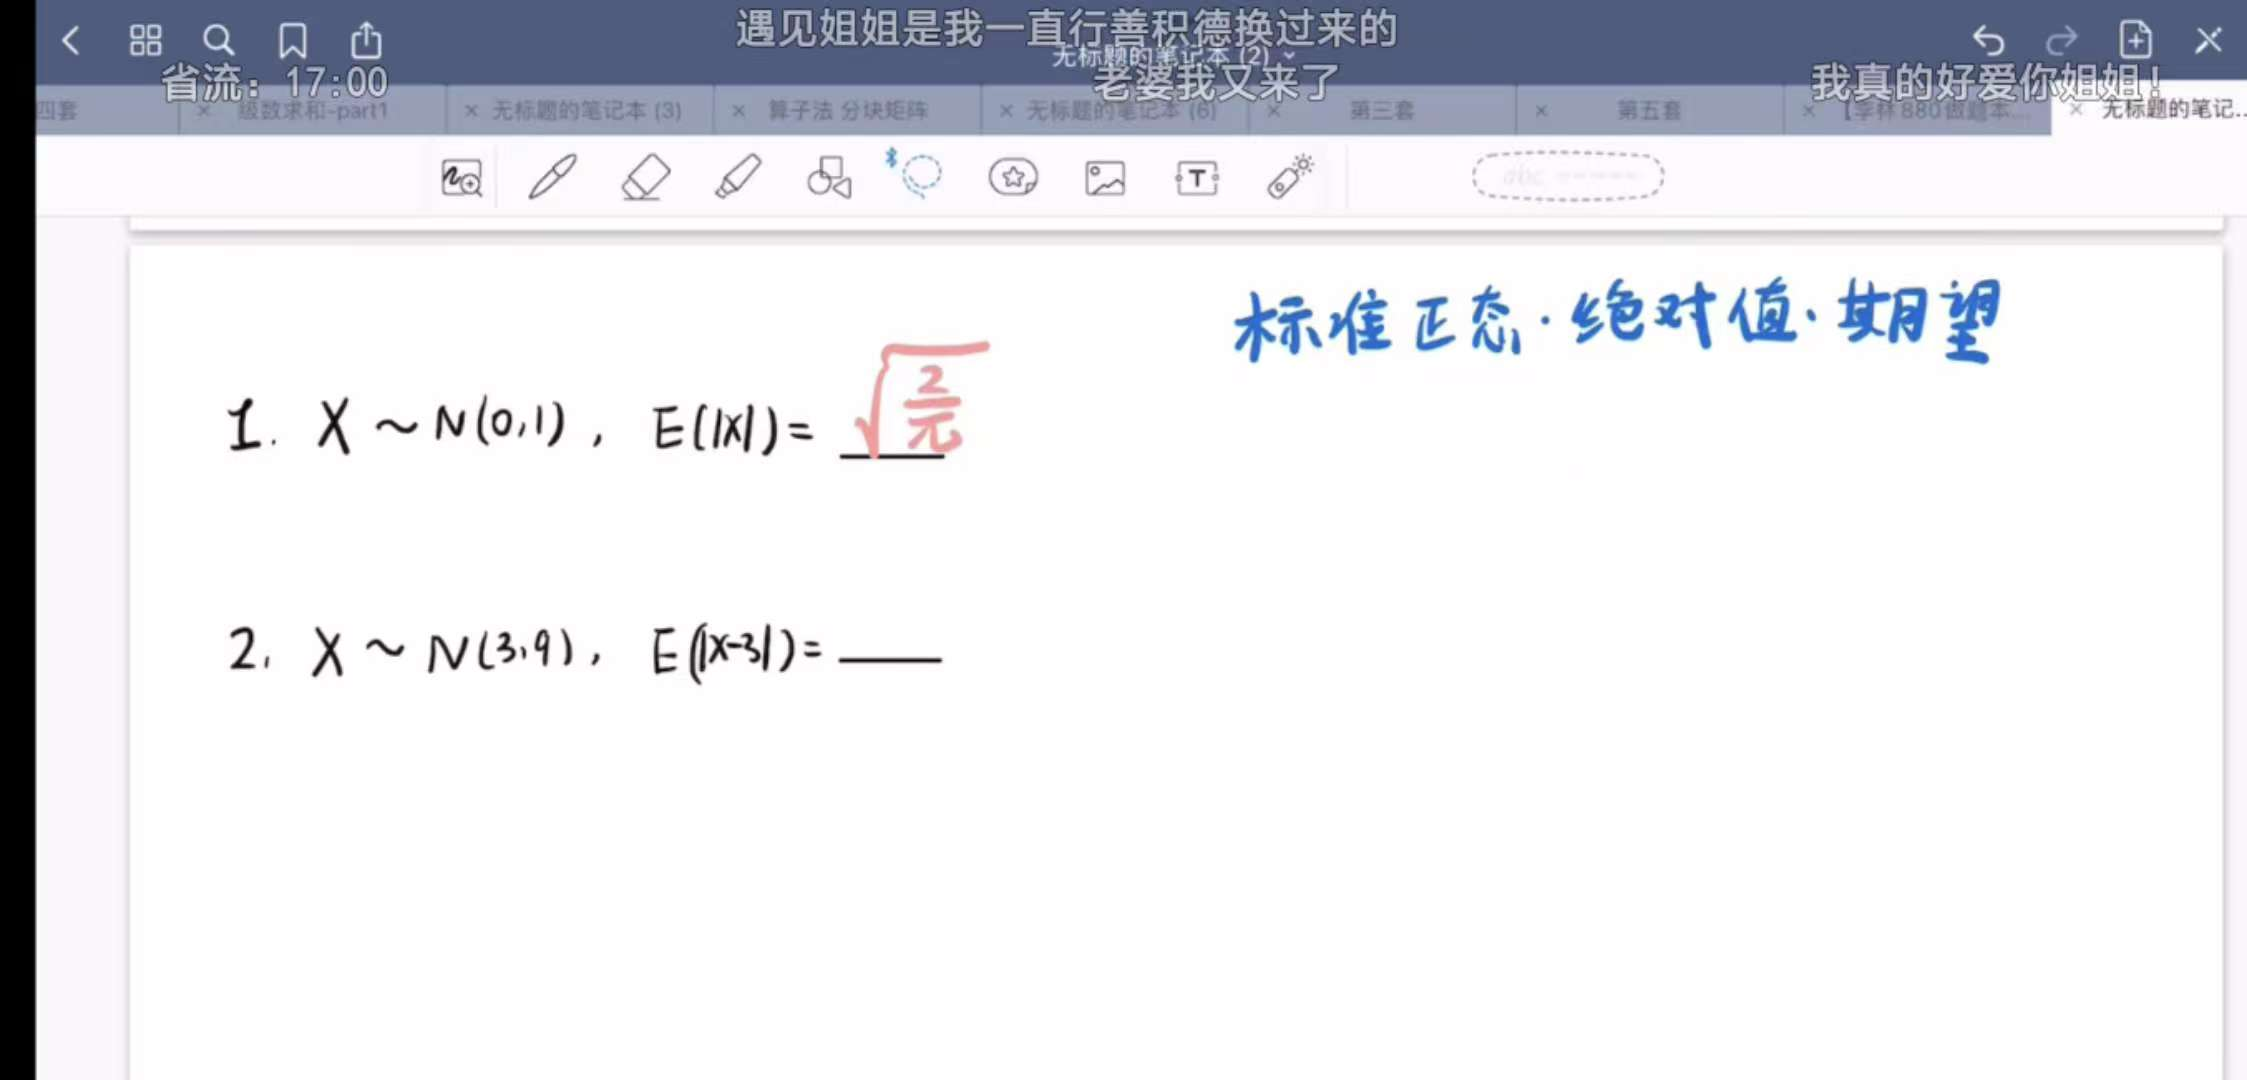 遇见姐姐是我一直行善积德换过来的
无标题的笔记本 (2)
省流：17:00
老婆我又来了
我真的好爱你姐姐！
四套
级数求和-part1
无标题的笔记本 (3)
算子法 分块矩阵
无标题的笔记本 (6)
第三套
第五套
【李林880做题本...
无标题的笔记...
abc
T
标准正态·绝对值·期望
1. X ~ N(0,1), E(|X|)= √(2/π)
2. X ~ N(3,9), E(|X-3|)= ____